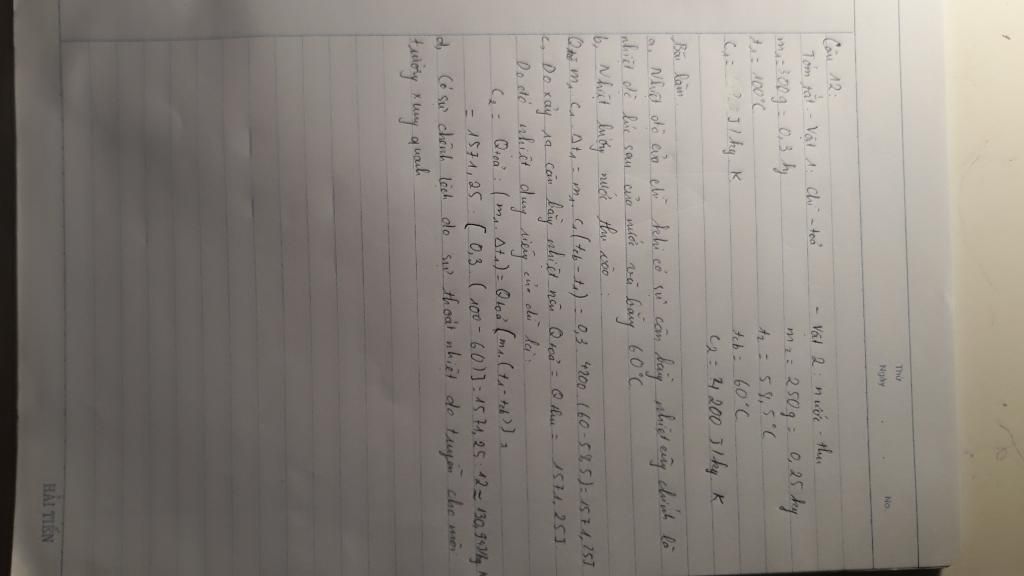 Thứ
Ngày . . No.
Câu 12:
Tóm tắt - Vật 1: chì - toả - Vật 2: nước thu
m₁ = 300g = 0,3 kg m₂ = 250g = 0,25 kg
t₁ = 100°C t₂ = 58,5°C
tcb = 60°C
C₁ = J/kg K C₂ = 4200 J/kg K
Bài làm
a, Nhiệt độ của chì khi có sự cân bằng nhiệt cũng chính là
nhiệt độ lúc sau của nước và bằng 60°C
b, Nhiệt lượng nước thu vào:
m₁ . C₁ . Δt₁ = m₁ C₁ (tcb - t₁) = 0,3 . 4200 (60-58,5) = 1571,25J
c, Do xảy ra cân bằng nhiệt nên Qtoả = Q thu = 1571,25J
Do đó nhiệt dung riêng của chì là:
C₂ = Qtoả : (m₁. Δt₁) = Qtoả (m₁. (t₁ - tcb)) =
= 1571,25 : [0,3 (100 - 60)] = 1571,25 : 12 = J/kg K
d, Có sự chênh lệch do sự thoát nhiệt do truyền cho môi
trường xung quanh
HẢI TIẾN